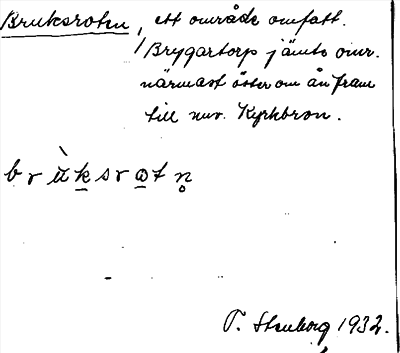 Bruksroten, ett område omfatt.
Brygartorp jämte omr.
närmast öster om ån fram
till nuv. Kyrkbron.
brùksrotn̥
T. Stenberg 1932.